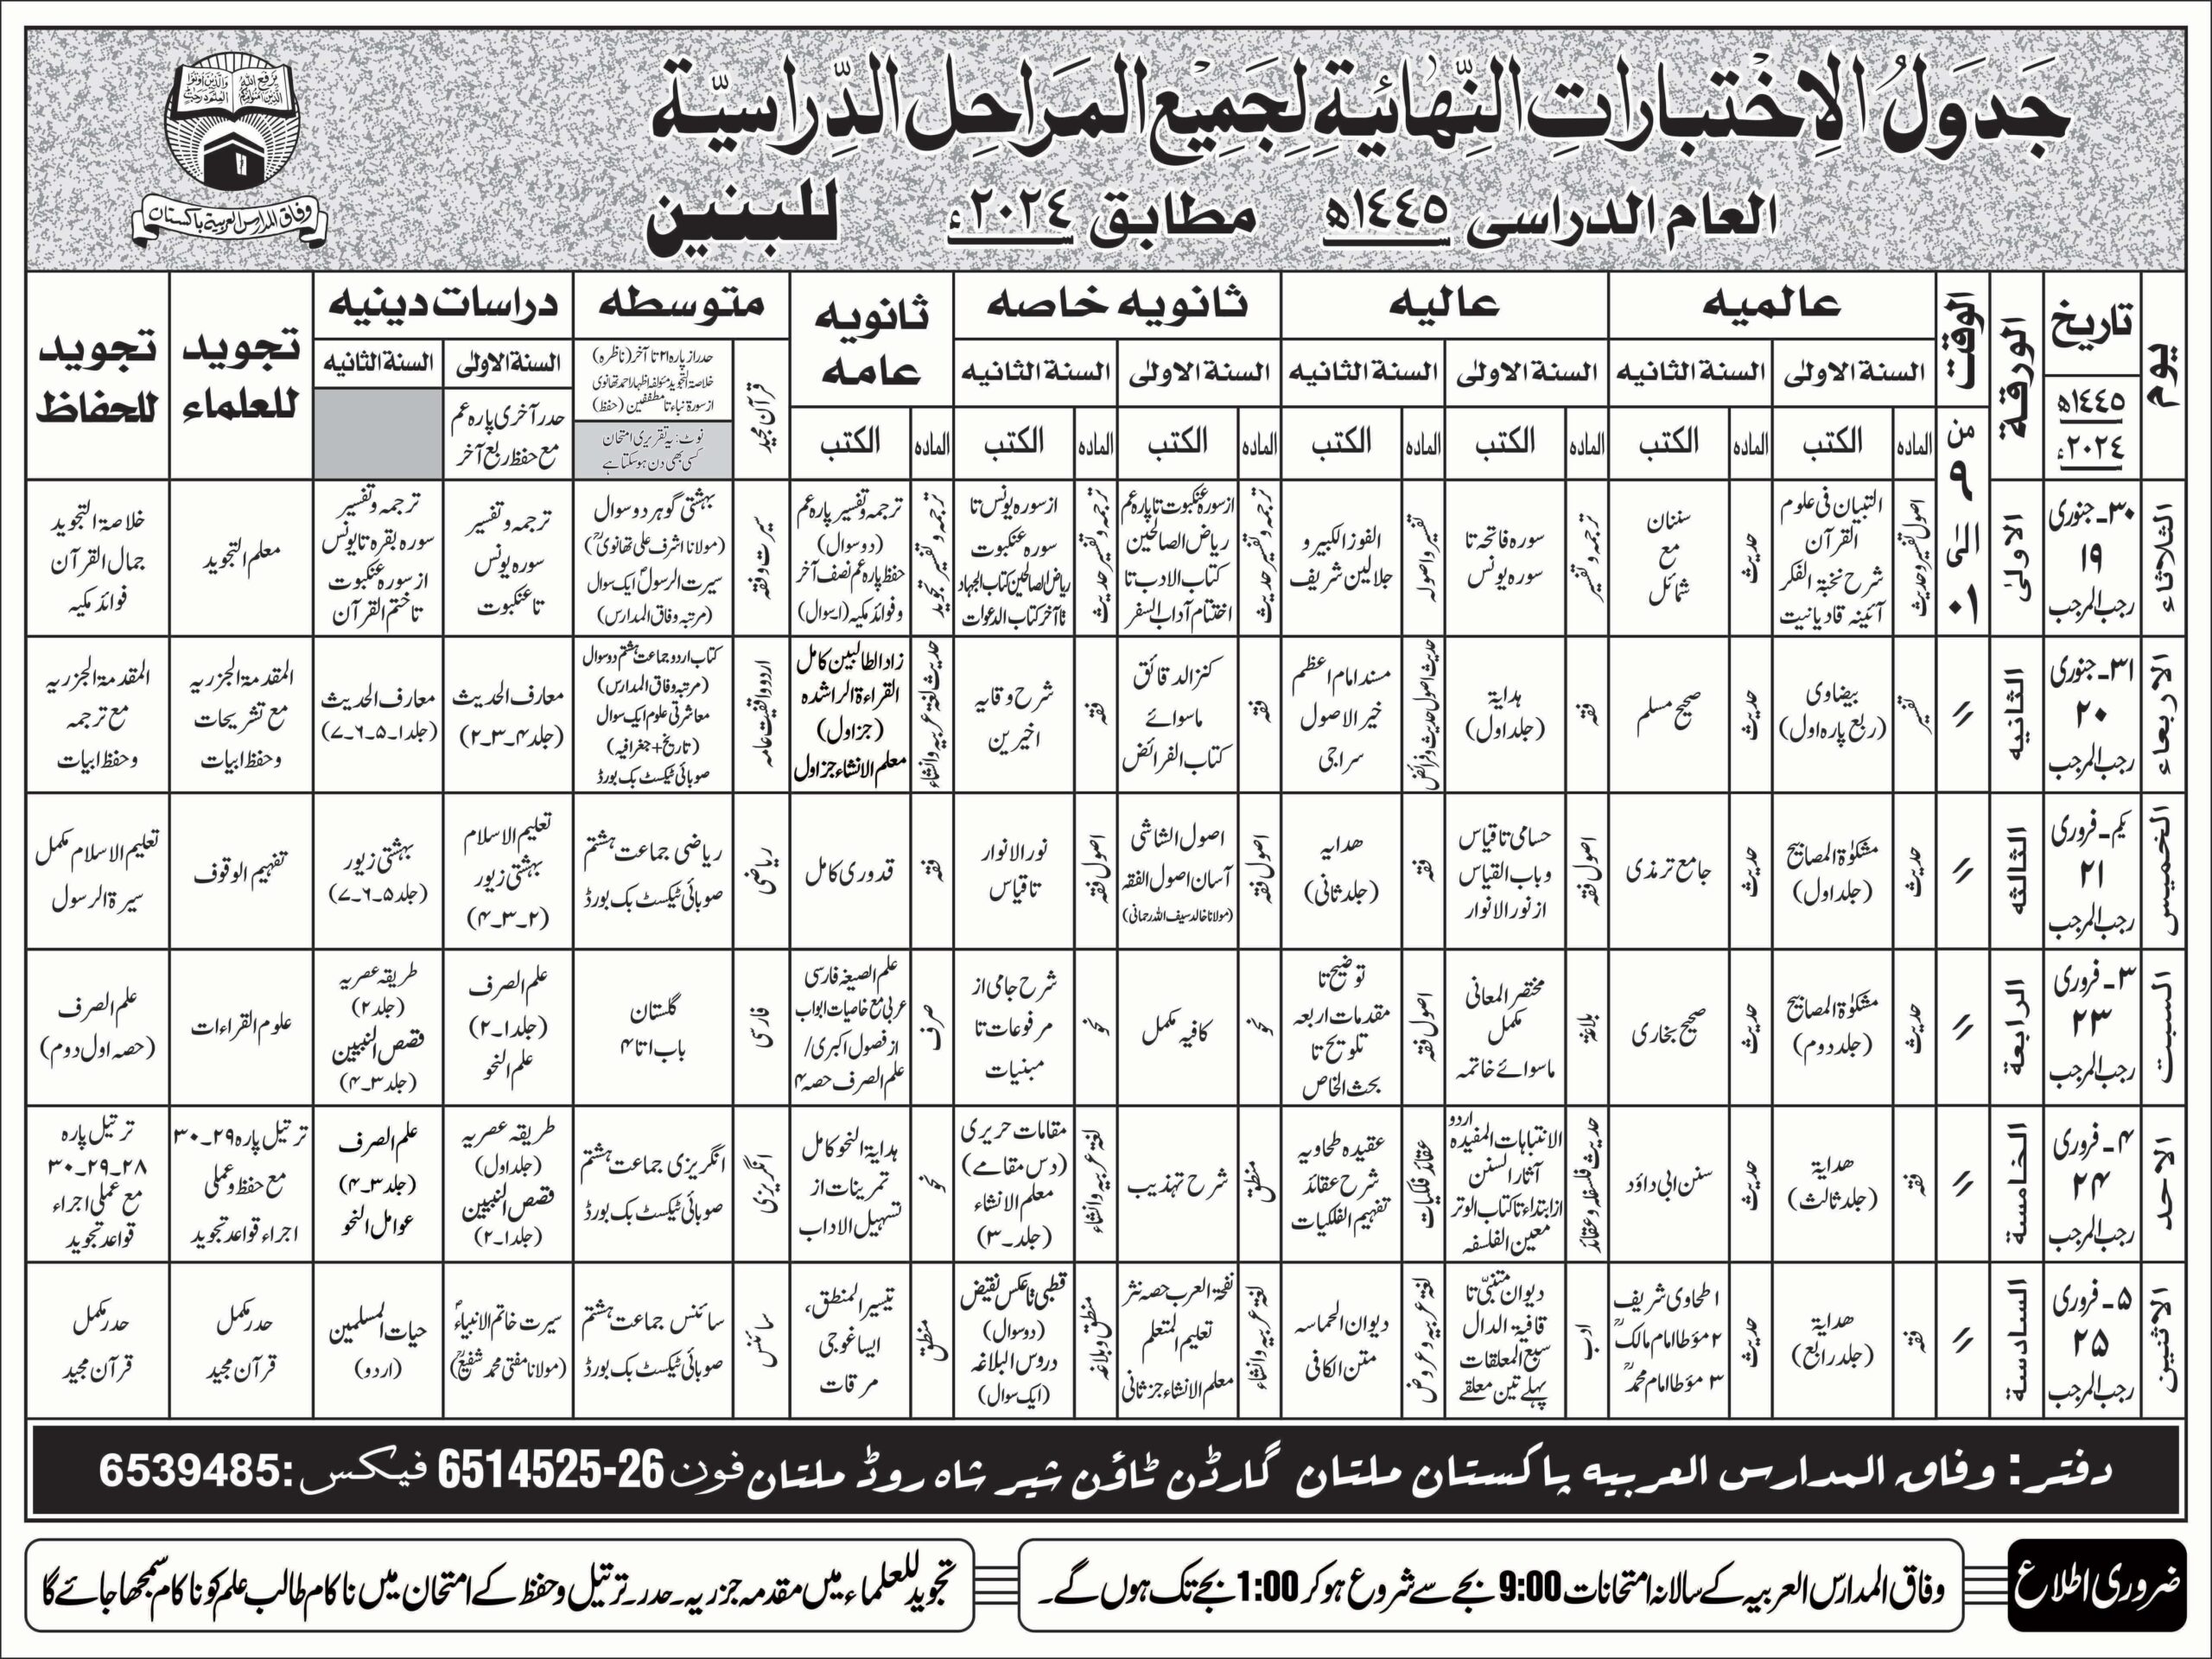 جَدوَلُ الاِخْتبارَاتِ النِّهَائِيَةِ لِجَمِيْعِ المَرَاحِلِ الدِّرَاسيَّة
العام الدراسی ١٤٤٥ھ مطابق ٢٠٢٤ء للبنين
وفاق المدارس العربیة پاکستان
یوم
تاریخ
١٤٤٥ھ
٢٠٢٤ء
الورقة
الوقت
من ٩ الی ١٠
عالمیه
عالیه
ثانویه خاصه
ثانویه عامه
متوسطه
دراسات دینیه
تجوید للعلماء
تجوید للحفاظ
السنة الاولیٰ
السنة الثانیه
السنة الاولیٰ
السنة الثانیه
السنة الاولیٰ
السنة الثانیه
السنة الاولیٰ
السنة الثانیه
الماده
الکتب
الماده
الکتب
الماده
الکتب
الماده
الکتب
الماده
الکتب
الماده
الکتب
الماده
الکتب
قرآن مجید
حدر از پارہ ۲۱ تا آخر (ناظرہ)
خلاصۃ التجوید مؤلفہ اظہار احمد تھانوی
از سورۃ نباء تا مطففین (حفظ)
نوٹ: یہ تقریری امتحان
کسی بھی دن ہوسکتا ہے
حدر آخری پارہ عم
مع حفظ ربع آخر
الثلاثاء
۳۰۔ جنوری
۱۹
رجب المرجب
الاولیٰ
اصول تفسیر وحدیث
التبیان فی علوم
القرآن
شرح نخبۃ الفکر
آئینہ قادیانیت
حدیث
سنان
مع
شمائل
ترجمہ و تفسیر
سورہ فاتحہ تا
سورہ یونس
تفسیر واصولہ
الفوز الکبیر و
جلالین شریف
ترجمہ و تفسیر حدیث
از سورہ عنکبوت تا پارہ عم
ریاض الصالحین
کتاب الادب تا
اختتام آداب السفر
ترجمہ و تفسیر حدیث
از سورہ یونس تا
سورہ عنکبوت
ریاض الصالحین کتاب الجہاد
تا آخر کتاب الدعوات
ترجمہ و تفسیر تجوید
ترجمہ و تفسیر پارہ عم
(دو سوال)
حفظ پارہ عم نصف آخر
و فوائد مکیہ (ا سوال)
سیرت و فقہ
بہشتی گوہر دو سوال
(مولانا اشرف علی تھانویؒ)
سیرت الرسولؐ ایک سوال
(مرتبہ وفاق المدارس)
ترجمہ و تفسیر
سورہ یونس
تا عنکبوت
ترجمہ و تفسیر
سورہ بقرہ تا یونس
از سورہ عنکبوت
تا ختم القرآن
معلم التجوید
خلاصۃ التجوید
جمال القرآن
فوائد مکیہ
الاربعاء
۳۱۔ جنوری
۲۰
رجب المرجب
الثانیه
〃
تفسیر
بیضاوی
(ربع پارہ اول)
حدیث
صحیح مسلم
فقہ
ہدایۃ
(جلد اول)
حدیث اصول حدیث و فرائض
مسند امام اعظم
خیر الاصول
سراجی
فقہ
کنز الدقائق
ماسوائے
کتاب الفرائض
فقہ
شرح وقایہ
اخیرین
حدیث لغۃ عربیہ وانشاء
زاد الطالبین کامل
القراءۃ الراشدہ
(جز اول)
معلم الانشاء جز اول
اردو واقفیت عامہ
کتاب اردو جماعت ہشتم دو سوال
(مرتبہ وفاق المدارس)
معاشرتی علوم ایک سوال
(تاریخ + جغرافیہ)
صوبائی ٹیکسٹ بک بورڈ
معارف الحدیث
(جلد ۲۔۳۔۴)
معارف الحدیث
(جلد ۱۔۵۔۶۔۷)
المقدمۃ الجزریہ
مع تشریحات
وحفظ ابیات
المقدمۃ الجزریہ
مع ترجمہ
وحفظ ابیات
الخمیس
یکم۔ فروری
۲۱
رجب المرجب
الثالثه
〃
حدیث
مشکوٰۃ المصابیح
(جلد اول)
حدیث
جامع ترمذی
اصول فقہ
حسامی تا قیاس
وباب القیاس
از نور الانوار
فقہ
ھدایہ
(جلد ثانی)
اصول فقہ
اصول الشاشی
آسان اصول الفقہ
(مولانا خالد سیف اللہ رحمانی)
اصول فقہ
نور الانوار
تا قیاس
فقہ
قدوری کامل
ریاضی
ریاضی جماعت ہشتم
صوبائی ٹیکسٹ بک بورڈ
تعلیم الاسلام
بہشتی زیور
(۲۔۳۔۴)
بہشتی زیور
(جلد ۵۔۶۔۷)
تفہیم الوقوف
تعلیم الاسلام مکمل
سیرۃ الرسول
السبت
۳۔ فروری
۲۳
رجب المرجب
الرابعة
〃
حدیث
مشکوٰۃ المصابیح
(جلد دوم)
حدیث
صحیح بخاری
بلاغۃ
مختصر المعانی
مکمل
ماسوائے خاتمہ
اصول فقہ
توضیح تا
مقدمات اربعہ
تلویح تا
بحث الخاص
نحو
کافیہ مکمل
نحو
شرح جامی از
مرفوعات تا
مبنیات
صرف
علم الصیغہ فارسی
عربی مع خاصیات ابواب
از فصول اکبری/
علم الصرف حصہ ۴
فارسی
گلستان
باب ۱ تا ۴
علم الصرف
(جلد ۱۔۲)
علم النحو
طریقہ عصریہ
(جلد ۲)
قصص النبیین
(جلد ۳۔۴)
علوم القراءات
علم الصرف
(حصہ اول دوم)
الاحد
۴۔ فروری
۲۴
رجب المرجب
الخامسة
〃
فقہ
ھدایۃ
(جلد ثالث)
حدیث
سنن ابی داؤد
حدیث فلسفہ وعقائد
الانتباہات المفیدہ اردو
آثار السنن
از ابتداء تا کتاب الوتر
معین الفلسفہ
عقائد فلکیات
عقیدہ طحاویہ
شرح عقائد
تفہیم الفلکیات
منطق
شرح تہذیب
لغۃ عربیہ وانشاء
مقامات حریری
(دس مقامے)
معلم الانشاء
(جلد۔۳)
نحو
ہدایۃ النحو کامل
تمرینات از
تسہیل الاداب
انگریزی
انگریزی جماعت ہشتم
صوبائی ٹیکسٹ بک بورڈ
طریقہ عصریہ
(جلد اول)
قصص النبیین
(جلد ۱۔۲)
علم الصرف
(جلد ۳۔۴)
عوامل النحو
ترتیل پارہ ۲۹۔۳۰
مع حفظ وعملی
اجراء قواعد تجوید
ترتیل پارہ
۲۸۔۲۹۔۳۰
مع عملی اجراء
قواعد تجوید
الاثنین
۵۔ فروری
۲۵
رجب المرجب
السادسة
〃
فقہ
ھدایۃ
(جلد رابع)
حدیث
۱ طحاوی شریف
۲ مؤطا امام مالکؒ
۳ مؤطا امام محمدؒ
ادب
دیوان متنبّی تا
قافیۃ الدال
سبع المعلقات
پہلے تین معلقے
لغۃ عربیہ وعروض
دیوان الحماسہ
متن الکافی
لغۃ عربیہ وانشاء
نفحۃ العرب حصہ نثر
تعلیم المتعلم
معلم الانشاء جز ثانی
منطق وبلاغہ
قطبی تا عکس نقیض
(دو سوال)
دروس البلاغہ
(ایک سوال)
منطق
تیسیر المنطق،
ایساغوجی
مرقات
سائنس
سائنس جماعت ہشتم
صوبائی ٹیکسٹ بک بورڈ
سیرت خاتم الانبیاءؐ
(مولانا مفتی محمد شفیعؒ)
حیات المسلمین
(اردو)
حدر مکمل
قرآن مجید
حدر مکمل
قرآن مجید
دفتر: وفاق المدارس العربیہ پاکستان ملتان گارڈن ٹاؤن شیر شاہ روڈ ملتان فون 6514525-26 فیکس: 6539485
ضروری اطلاع
وفاق المدارس العربیہ کے سالانہ امتحانات 9:00 بجے سے شروع ہو کر 1:00 بجے تک ہوں گے۔
تجوید للعلماء میں مقدمہ جزریہ۔ حدر۔ ترتیل وحفظ کے امتحان میں ناکام طالب علم کو ناکام سمجھا جائے گا